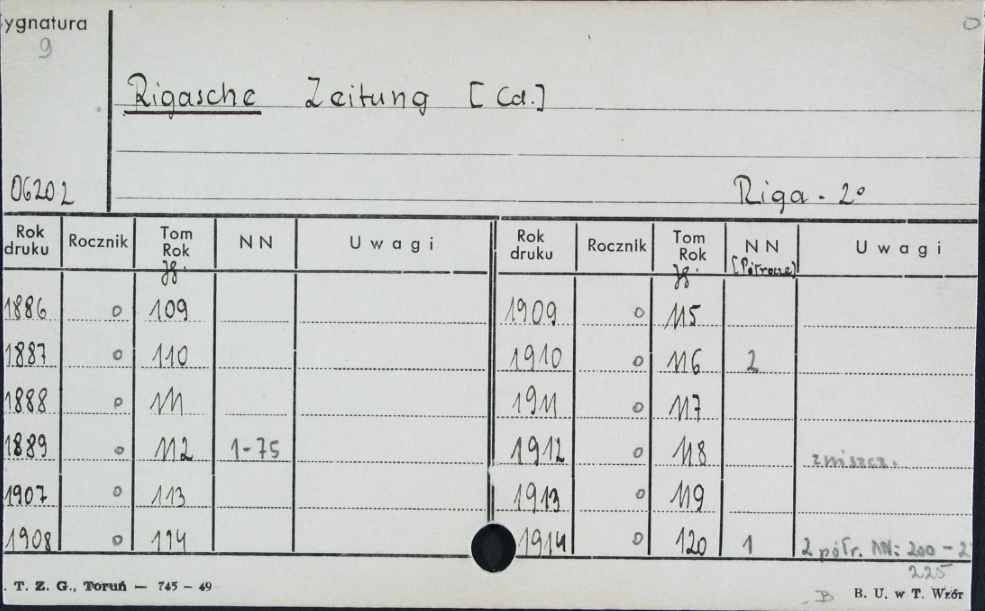 ygnatura
9
Rigasche Zeitung [Cd.]
06202
Riga - 2°
Rok druku Rocznik Tom Rok Jg. NN Uwagi Rok druku Rocznik Tom Rok Jg. NN [Półrocze] Uwagi
1886 o 109 1909 o 115
1887 o 110 1910 o 116 2
1888 o 111 1911 o 117
1889 o 112 1-75 1912 o 118 zniszcz.
1907 o 113 1913 o 119
1908 o 114 1914 o 120 1 2 półr. NN: 200 - 2
225
. T. Z. G., Toruń — 745 – 49
B
B. U. w T. Wzór